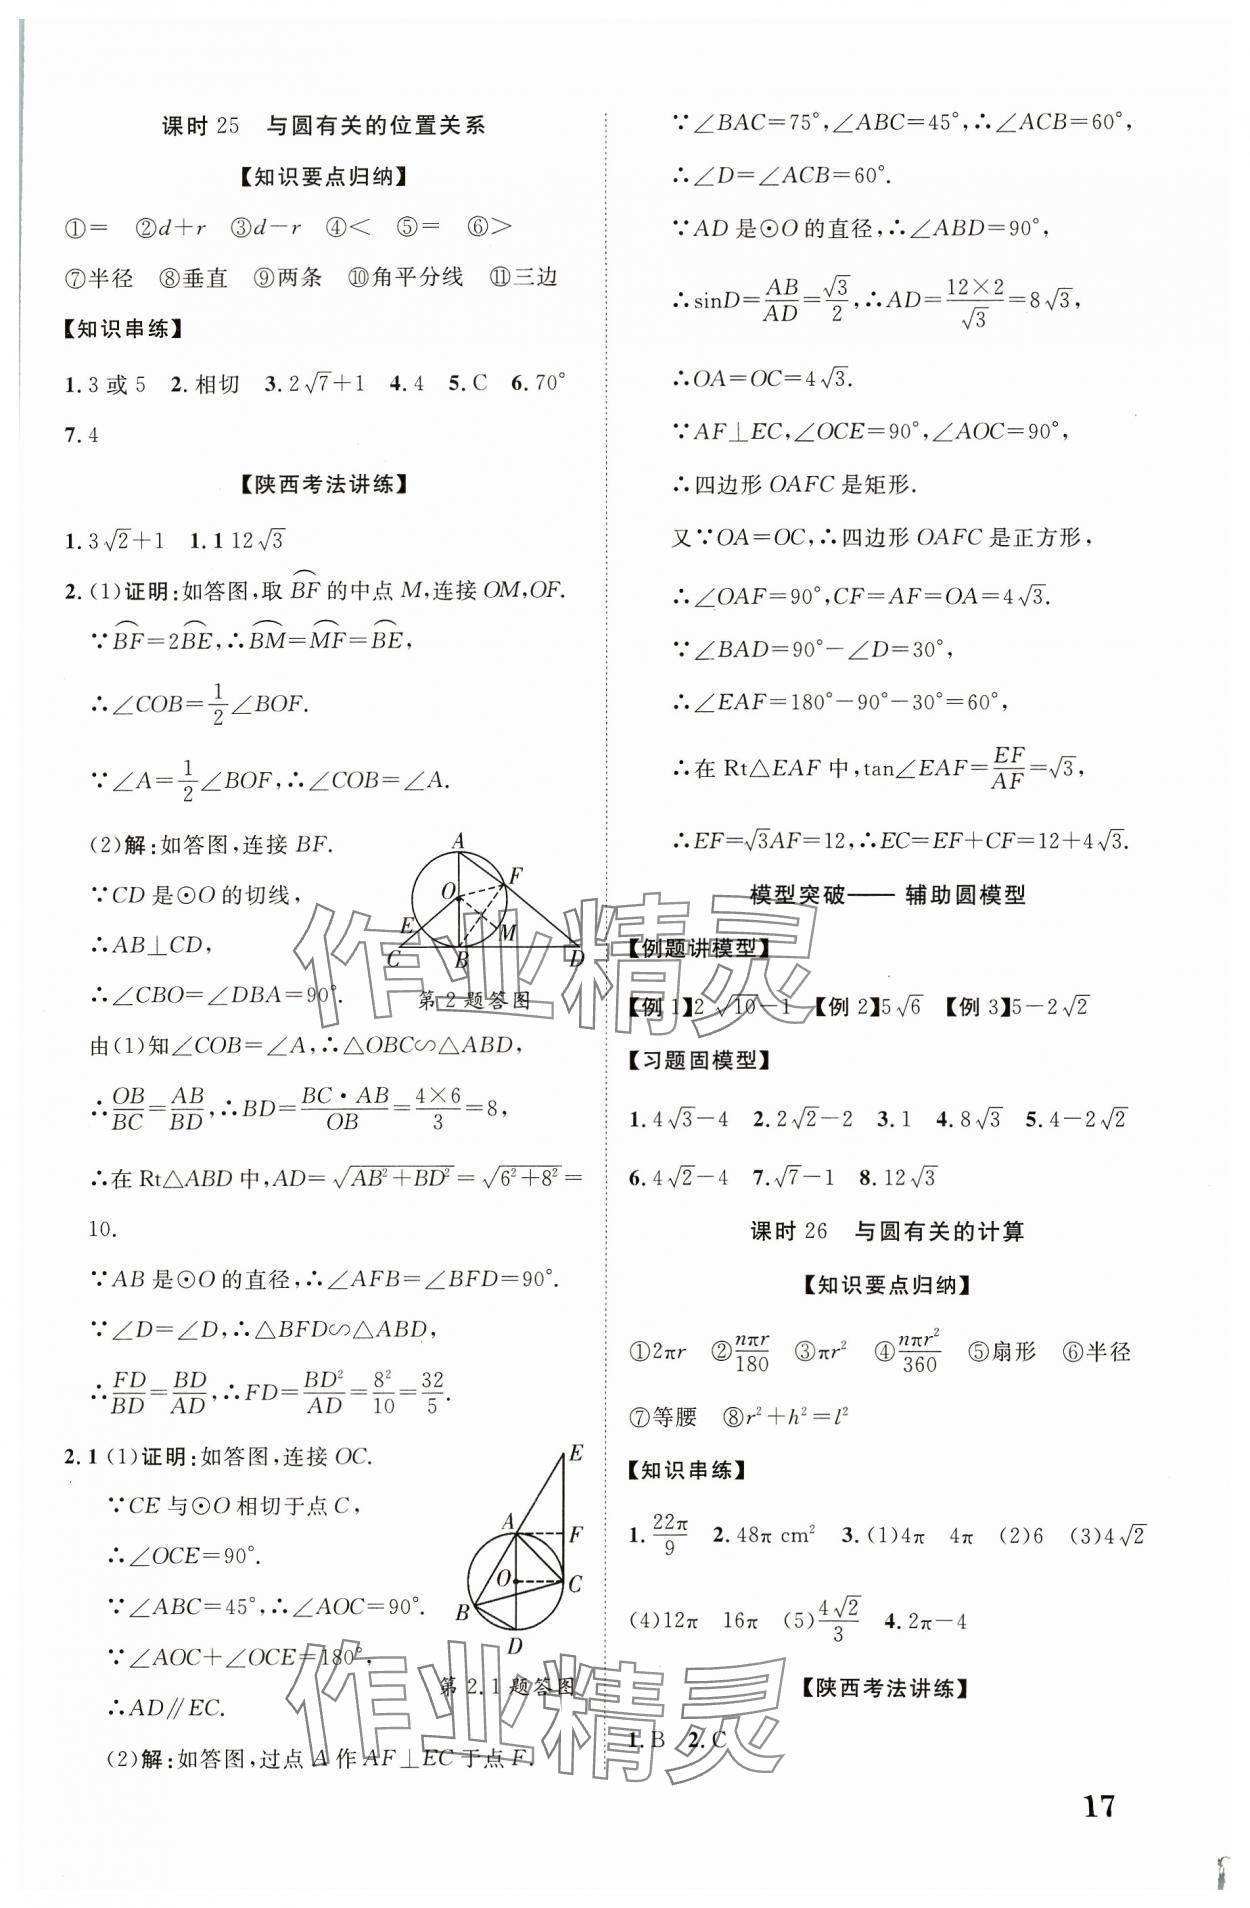 课时 25　与圆有关的位置关系
【知识要点归纳】
①=　②d+r　③d-r　④<　⑤=　⑥>
⑦半径　⑧垂直　⑨两条　⑩角平分线　⑪三边
【知识串练】
1.3 或 5　2.相切　3.2√7+1　4.4　5.C　6.70°
7.4
【陕西考法讲练】
1.3√2+1　1.1 12√3
2.(1)证明:如答图,取 ⌒BF 的中点 M,连接 OM,OF.
∵⌒BF=2⌒BE,∴⌒BM=⌒MF=⌒BE,
∴∠COB=1/2∠BOF.
∵∠A=1/2∠BOF,∴∠COB=∠A.
(2)解:如答图,连接 BF.
∵CD 是⊙O 的切线,
∴AB⊥CD,
∴∠CBO=∠DBA=90°.
A
F
O
E
M
C
B
D
第 2 题答图
由(1)知∠COB=∠A,∴△OBC∽△ABD,
∴OB/BC=AB/BD,∴BD=BC·AB/OB=4×6/3=8,
∴在 Rt△ABD 中,AD=√(AB²+BD²)=√(6²+8²)=
10.
∵AB 是⊙O 的直径,∴∠AFB=∠BFD=90°.
∵∠D=∠D,∴△BFD∽△ABD,
∴FD/BD=BD/AD,∴FD=BD²/AD=8²/10=32/5.
2.1 (1)证明:如答图,连接 OC.
∵CE 与⊙O 相切于点 C,
∴∠OCE=90°.
∵∠ABC=45°,∴∠AOC=90°.
∵∠AOC+∠OCE=180°,
∴AD∥EC.
E
A
F
O
C
B
D
第 2.1 题答图
(2)解:如答图,过点 A 作 AF⊥EC 于点 F.
∵∠BAC=75°,∠ABC=45°,∴∠ACB=60°,
∴∠D=∠ACB=60°.
∵AD 是⊙O 的直径,∴∠ABD=90°,
∴sinD=AB/AD=√3/2,∴AD=12×2/√3=8√3,
∴OA=OC=4√3.
∵AF⊥EC,∠OCE=90°,∠AOC=90°,
∴四边形 OAFC 是矩形.
又∵OA=OC,∴四边形 OAFC 是正方形,
∴∠OAF=90°,CF=AF=OA=4√3.
∵∠BAD=90°-∠D=30°,
∴∠EAF=180°-90°-30°=60°,
∴在 Rt△EAF 中,tan∠EAF=EF/AF=√3,
∴EF=√3AF=12,∴EC=EF+CF=12+4√3.
模型突破—— 辅助圆模型
【例题讲模型】
【例 1】2　√10-1　【例 2】5√6　【例 3】5-2√2
【习题固模型】
1.4√3-4　2.2√2-2　3.1　4.8√3　5.4-2√2
6.4√2-4　7.√7-1　8.12√3
课时 26　与圆有关的计算
【知识要点归纳】
①2πr　②nπr/180　③πr²　④nπr²/360　⑤扇形　⑥半径
⑦等腰　⑧r²+h²=l²
【知识串练】
1.22π/9　2.48π cm²　3.(1)4π　4π　(2)6　(3)4√2
(4)12π　16π　(5)4√2/3　4.2π-4
【陕西考法讲练】
1.B　2.C
17
作业精灵
作业精灵